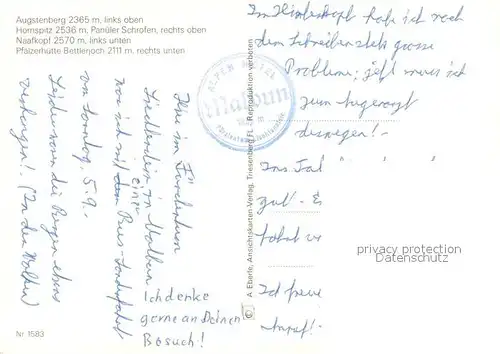 Augstenberg 2365 m, links oben
Hornspitz 2536 m, Panüler Schrofen, rechts oben
Naafkopf 2570 m, links unten
Pfälzerhütte Bettlerjoch 2111 m, rechts unten
Hier im Fürstentum
Liechtenstein in Malbun
war ich mit einer Bus-Sonderfahrt
am Sonntag, 5.9.
Leider waren die Bergen ebens
verhangen! (In den Wolken)
Ich denke
gerne an Deinen
Besuch!
Nr. 1583
ALPEN HOTEL
Malbun
Fürstentum Liechtenstein
A. Eberle, Ansichtskarten-Verlag, Triesenberg FL. Reproduktion verboten
Im Hinterkopf hab ich nach
dem Schreiben stets grosse
Probleme; jetzt muss ich
zum Augenarzt
deswegen!
gut!
privacy protection
Datenschutz
Ich freue